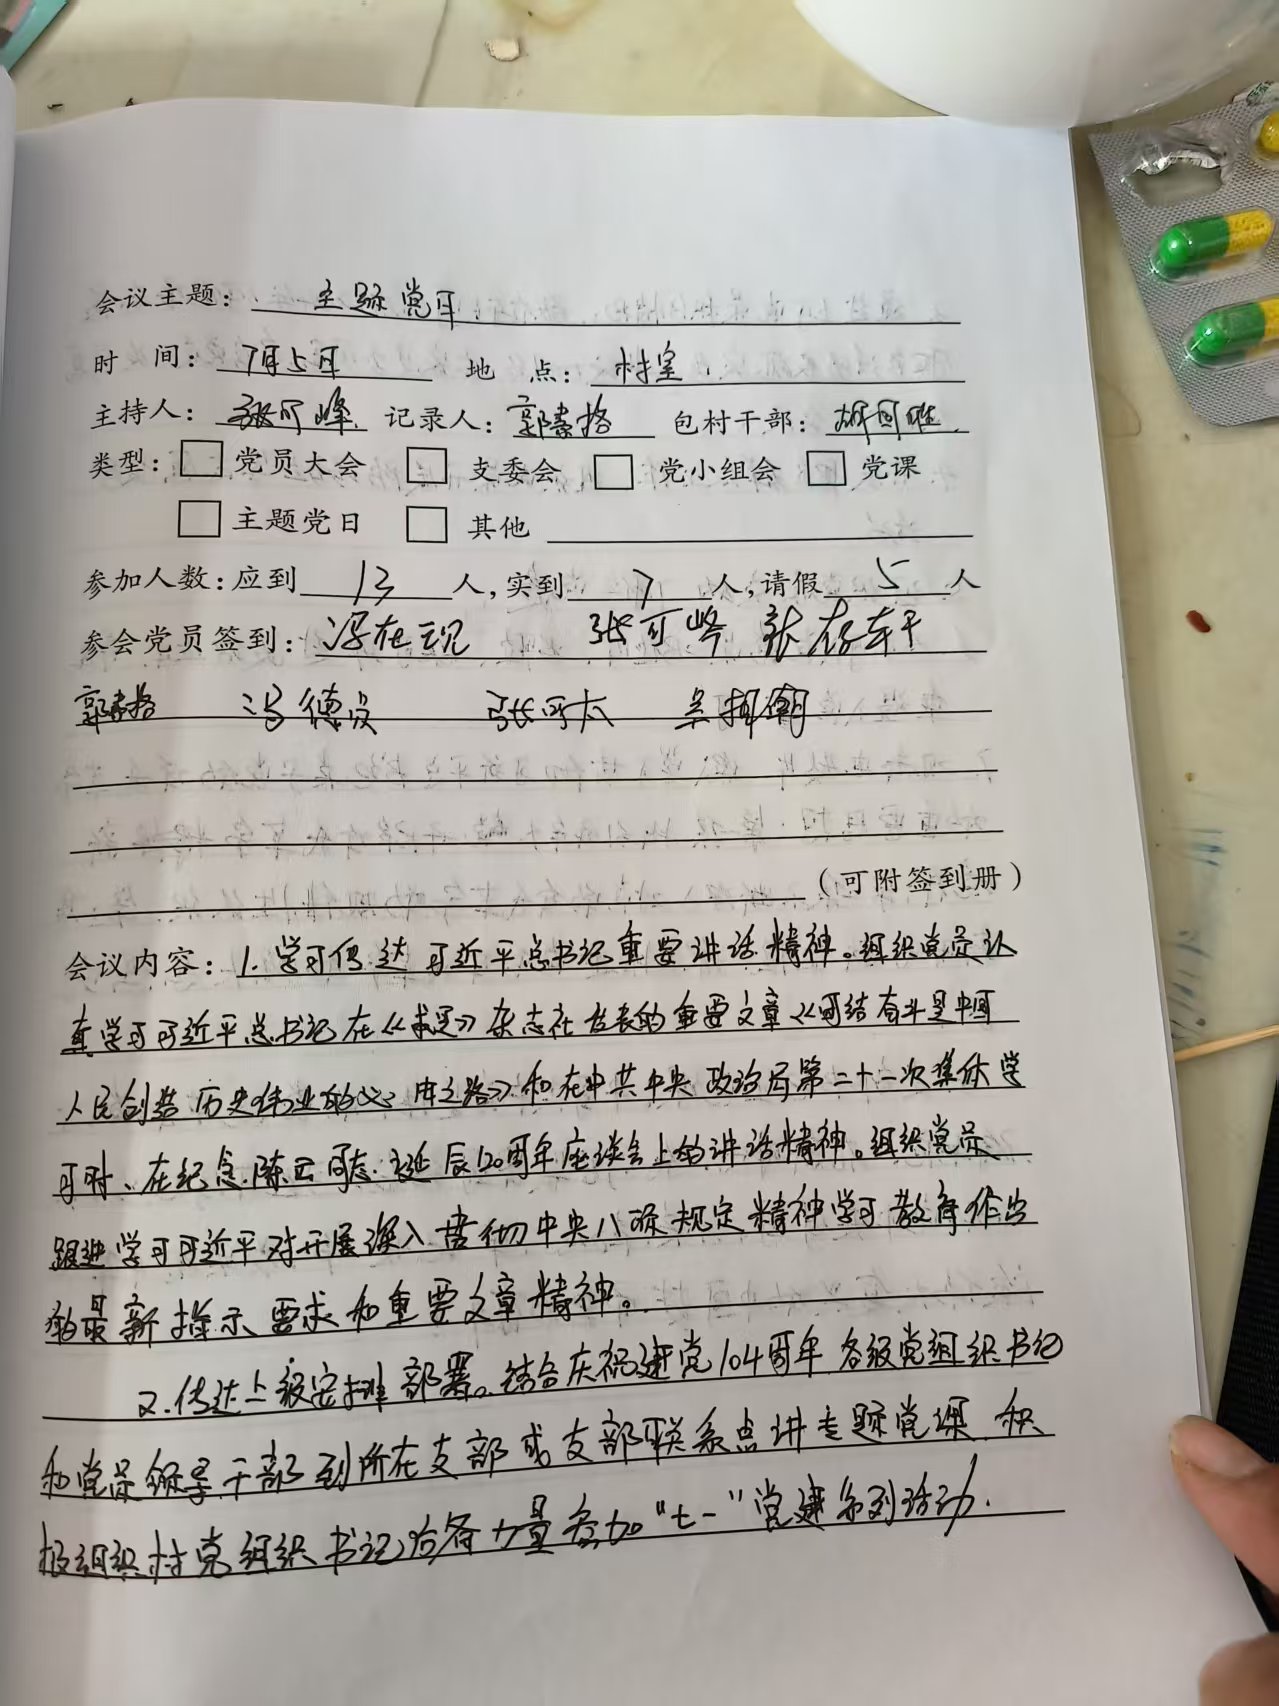 会议主题: 主题党日
时 间: 7月5日 地 点: 村室
主持人: 张可峰 记录人: 郭素格 包村干部:
类型: □ 党员大会 □ 支委会 □ 党小组会 □ 党课
□ 主题党日 □ 其他
参加人数: 应到 13 人, 实到 7 人, 请假 5 人
参会党员签到: 冯在现 张可峰 张存
郭素格 冯德员 张可太
(可附签到册)
会议内容: 1. 学习传达习近平总书记重要讲话精神。组织党员认
真学习习近平总书记在《求是》杂志社发表的重要文章《团结奋斗是中国
人民创造历史伟业的必由之路》和在中共中央政治局第二十一次集体学
习时、在纪念陈云同志诞辰120周年座谈会上的讲话精神。组织党员
跟进学习习近平对开展深入贯彻中央八项规定精神学习教育作出
的最新指示要求和重要文章精神。
2. 传达上级安排部署。结合庆祝建党104周年各级党组织书记
和党员领导干部到所在支部或支部联系点讲专题党课, 积
极组织村党组织书记后备力量参加“七一”党建系列活动.